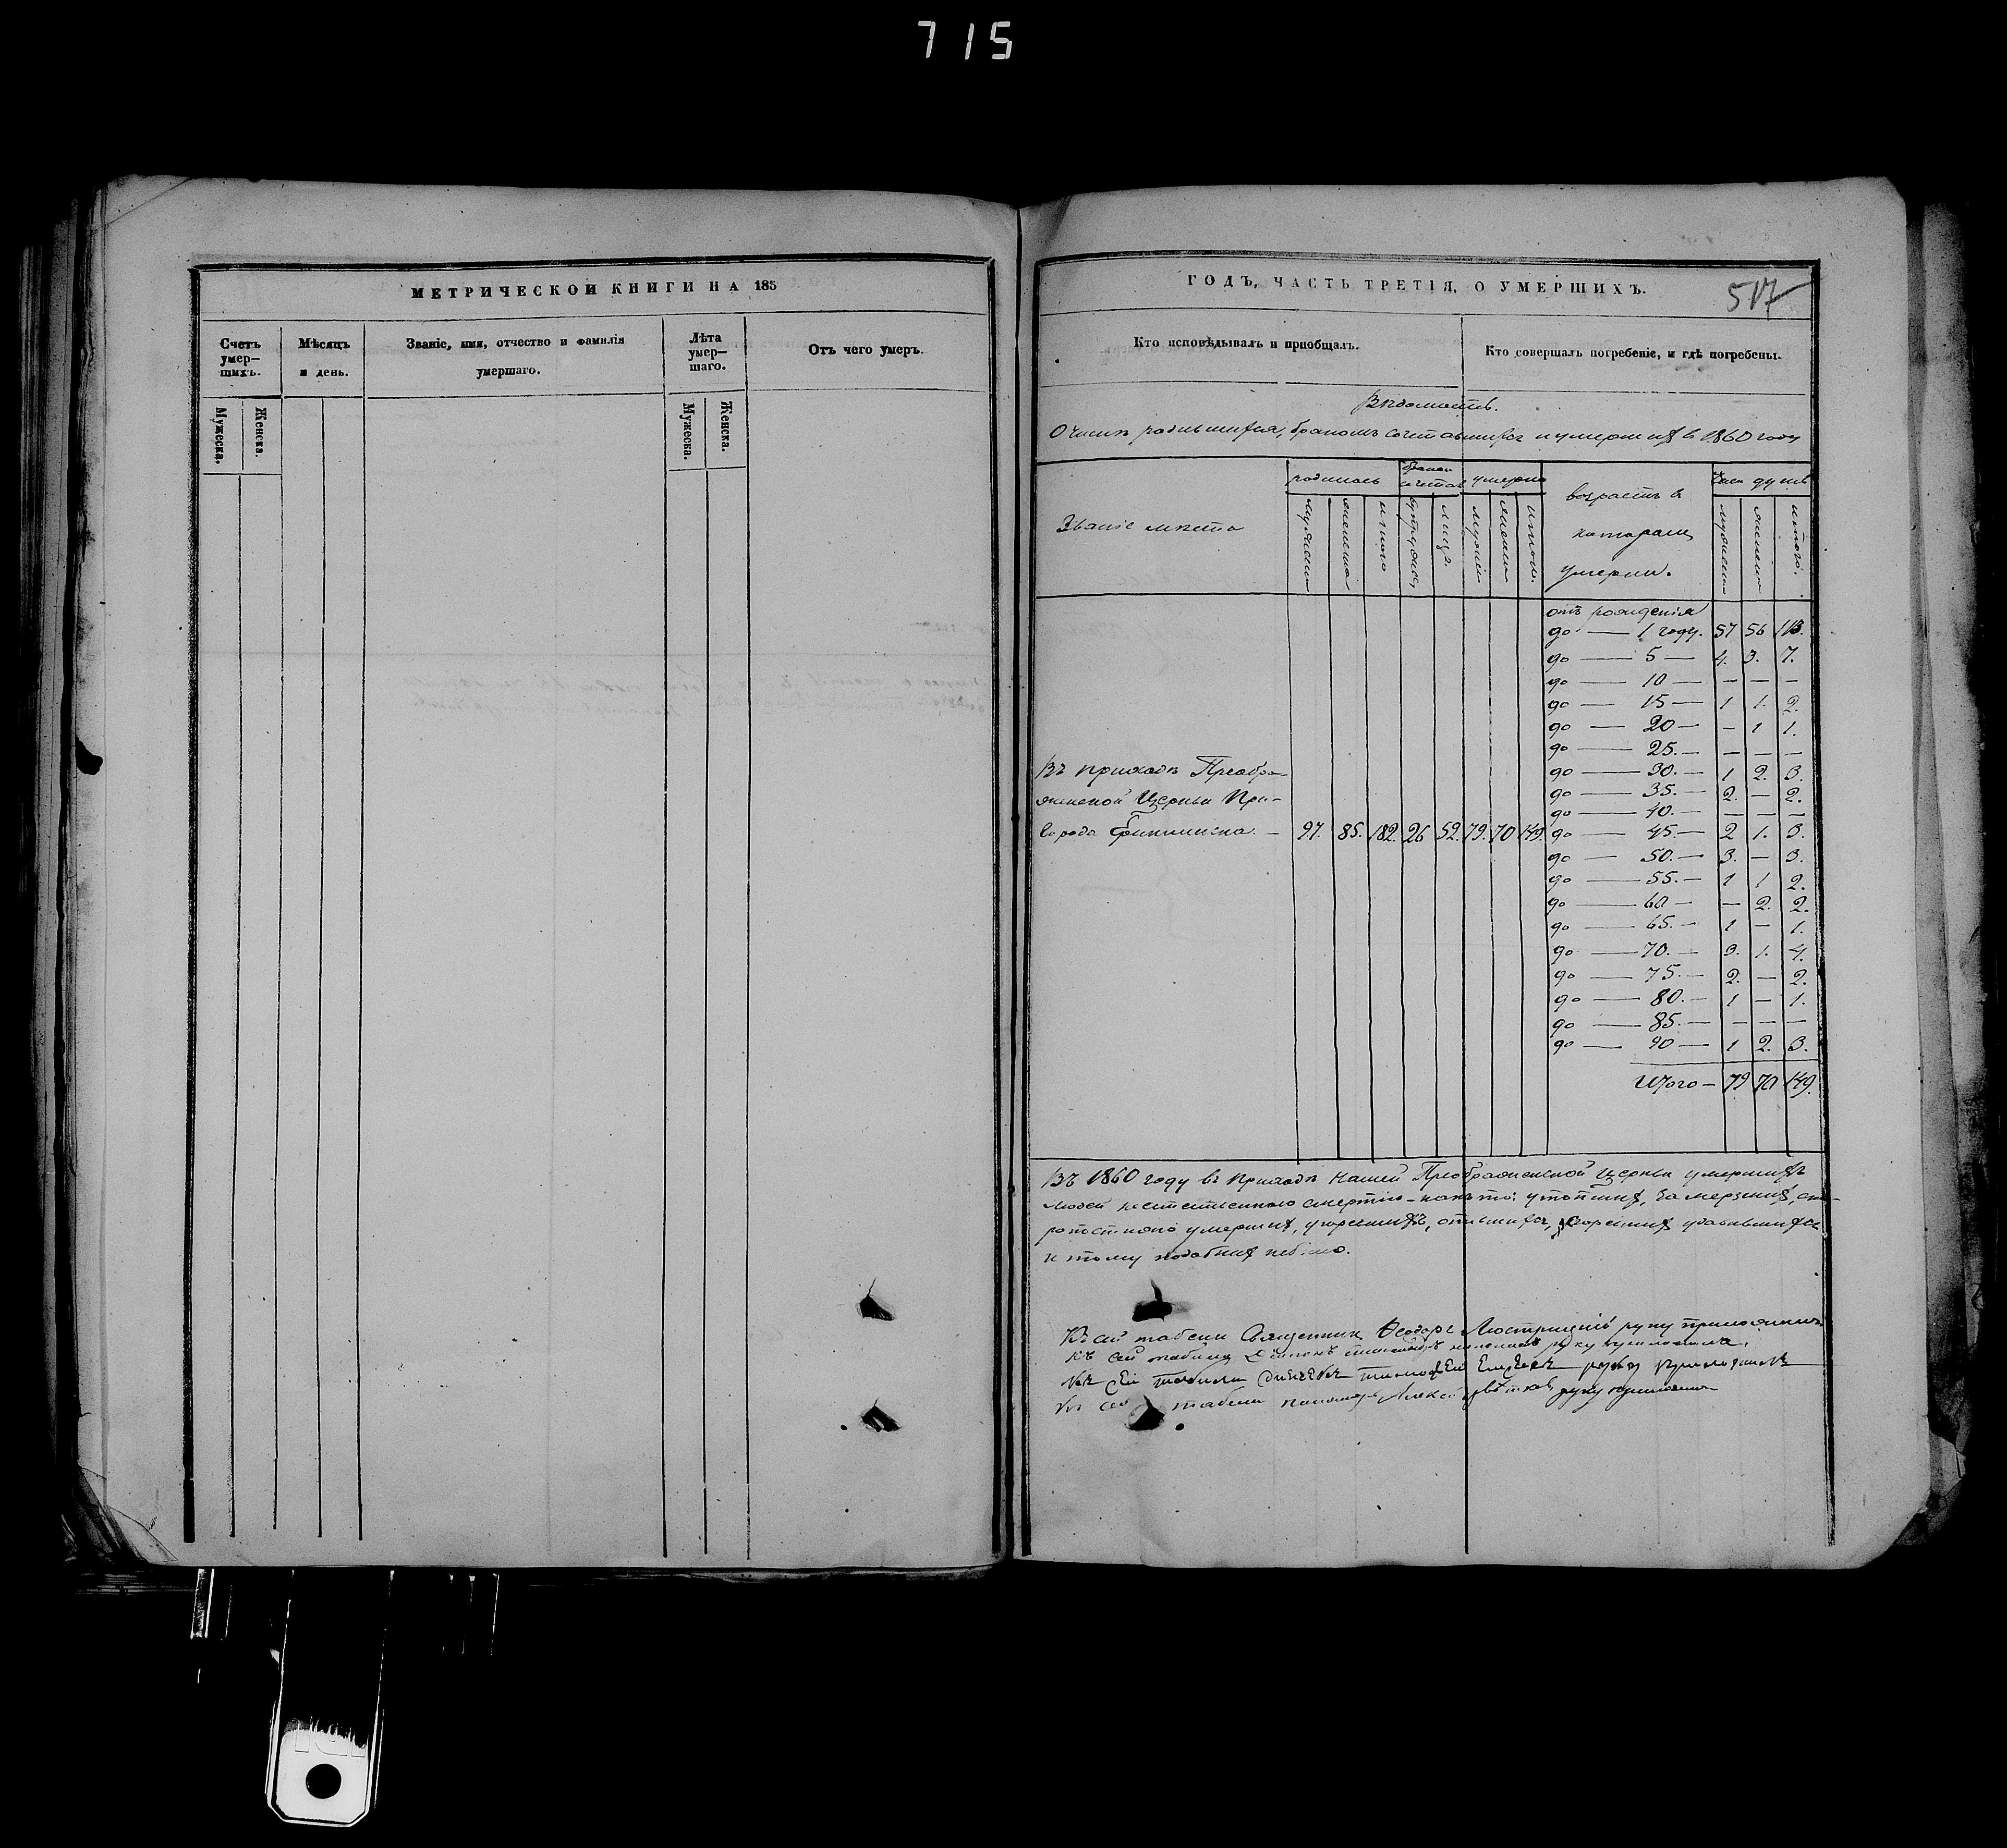 715
МЕТРИЧЕСКОЙ КНИГИ НА 185
Счетъ умер-шихъ.
Мужеска.
Женска.
Мѣсяцъ и день.
Званіе, имя, отчество и фамилія умершаго.
Лѣта умер-шаго.
Мужеска.
Женска.
Отъ чего умеръ.
ГОДЪ, ЧАСТЬ ТРЕТІЯ, О УМЕРШИХЪ.
517
Кто исповѣдывалъ и пріобщалъ.
Кто совершалъ погребеніе, и гдѣ погребены.
Вѣдомость.
О числѣ родившихся, бракомъ сочетавшихся и умершихъ в 1860 году
Званіе мѣста
родилось
умерло
возрастъ в
котаромъ
умерли.
итого
лицъ.
итого.
отъ рожденія
до — 1 году. 57 56 113.
до — 5 — 4. 3. 7.
до — 10 — — — —
до — 15 — 1 1. 2.
до — 20 — — 1 1.
до — 25. — — — —
до — 30. — 1 2. 3.
до — 35. — 2. — 2.
до — 40. — — — —
до — 45. — 2 1. 3.
до — 50. — 3. — 3.
до — 55. — 1 1 2.
до — 60 — — 2. 2.
до — 65. — 1 — 1.
до — 70. — 3. 1. 4.
до — 75. — 2. — 2.
до — 80. — 1 — 1.
до — 85. — — — —
до — 90 — 1 2. 3.
Итого — 79 70 149.
Въ приходѣ Преобра-
женской Церкви При-
города — 97. 85. 182. 26 52. 79. 70 149.
Въ 1860 году въ приходѣ нашей Преображенской Церкви умершихъ
людей неестественною смертію - какъ то: утопшихъ, замерзшихъ, ско-
ропостижно умершихъ, угоревшихъ, опившихся, сгоревшихъ удавившихся
и тому подобныхъ небыло.
Къ сей табели Священникъ Ѳеодоръ руку приложилъ
Къ сей табели руку приложилъ.
Къ сей табели Тимофей Елисеевъ руку приложилъ
Къ сей табели пономарь Алексей руку приложилъ